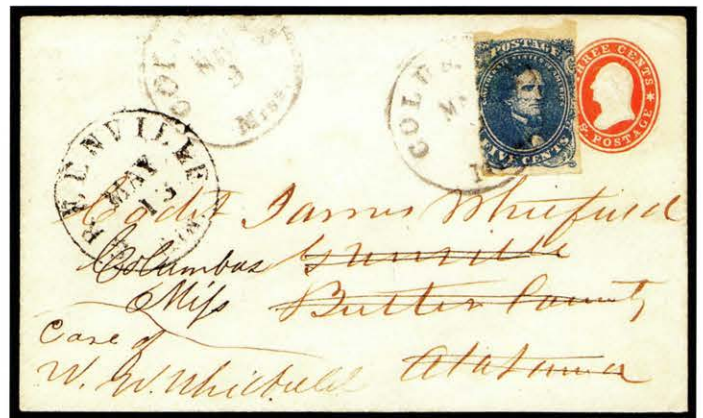 COLU
MISS.
COLU
POSTAGE
FIVE CENTS
THREE CENTS
POSTAGE
EENVILLE
MAY
13
Cadet James Whitfield
Columbus Greenville
Miss Butler County
Care of
W. W. Whitfield Alabama